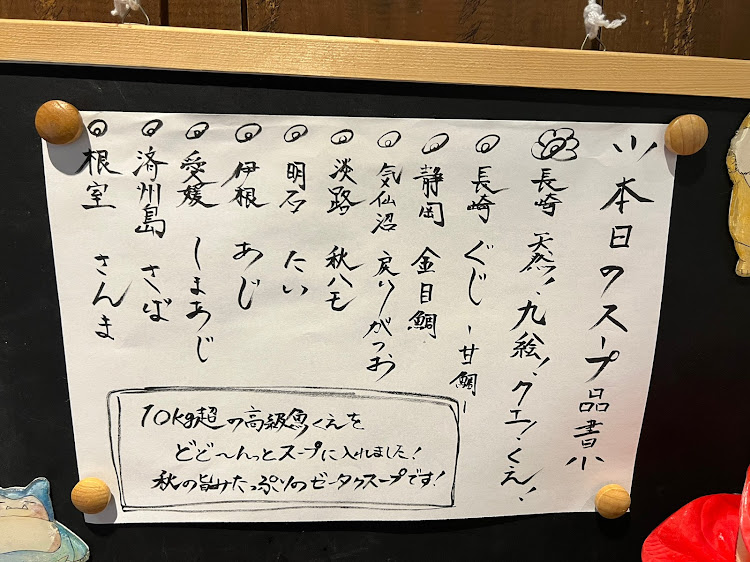 本日のスープ品書
長崎 天然!九絵!クエ!くえ!
長崎 ぐじ-甘鯛-
静岡 金目鯛
気仙沼 戻りがつお
淡路 秋ハモ
明石 たい
伊根 あじ
愛媛 しまあじ
済州島 さば
根室 さんま
10kg超の高級魚くえを
どど〜んっとスープに入れました!
秋の旨みたっぷりのゼータクスープです!